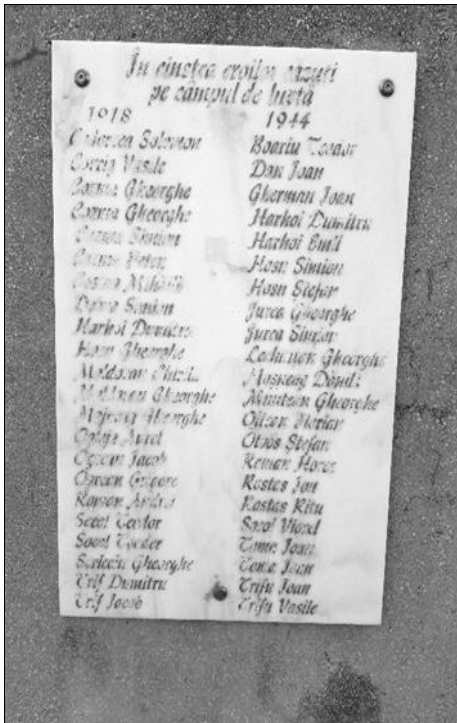 În cinstea eroilor căzuți
pe câmpul de luptă
1918
Solomon
Vasile
Cozma Gheorghe
Cozma Gheorghe
Cozma Simion
Cozma Petru
Cozma Mihăilă
Simion
Harhoi Dumitru
Hosu Gheorghe
Moldovan Chirilă
Moldovan Gheorghe
Gheorghe
Aurel
Ogrean Jacob
Ogrean Grigore
Roman Andrei
Socol Teodor
Socol Toader
Gheorghe
Trif Dumitru
Trif Jacob
1944
Boariu Teodor
Dan Joan
Gherman Joan
Harhoi Dumitru
Harhoi Emil
Hosu Simion
Hosu Ștefan
Jurca Gheorghe
Jurca Simion
Gheorghe
Danilă
Muntean Gheorghe
Florian
Otvos Ștefan
Roman Horea
Rostas Jon
Rostas Ritu
Socol Viorel
Toma Joan
Toma Joan
Trifu Joan
Trifu Vasile